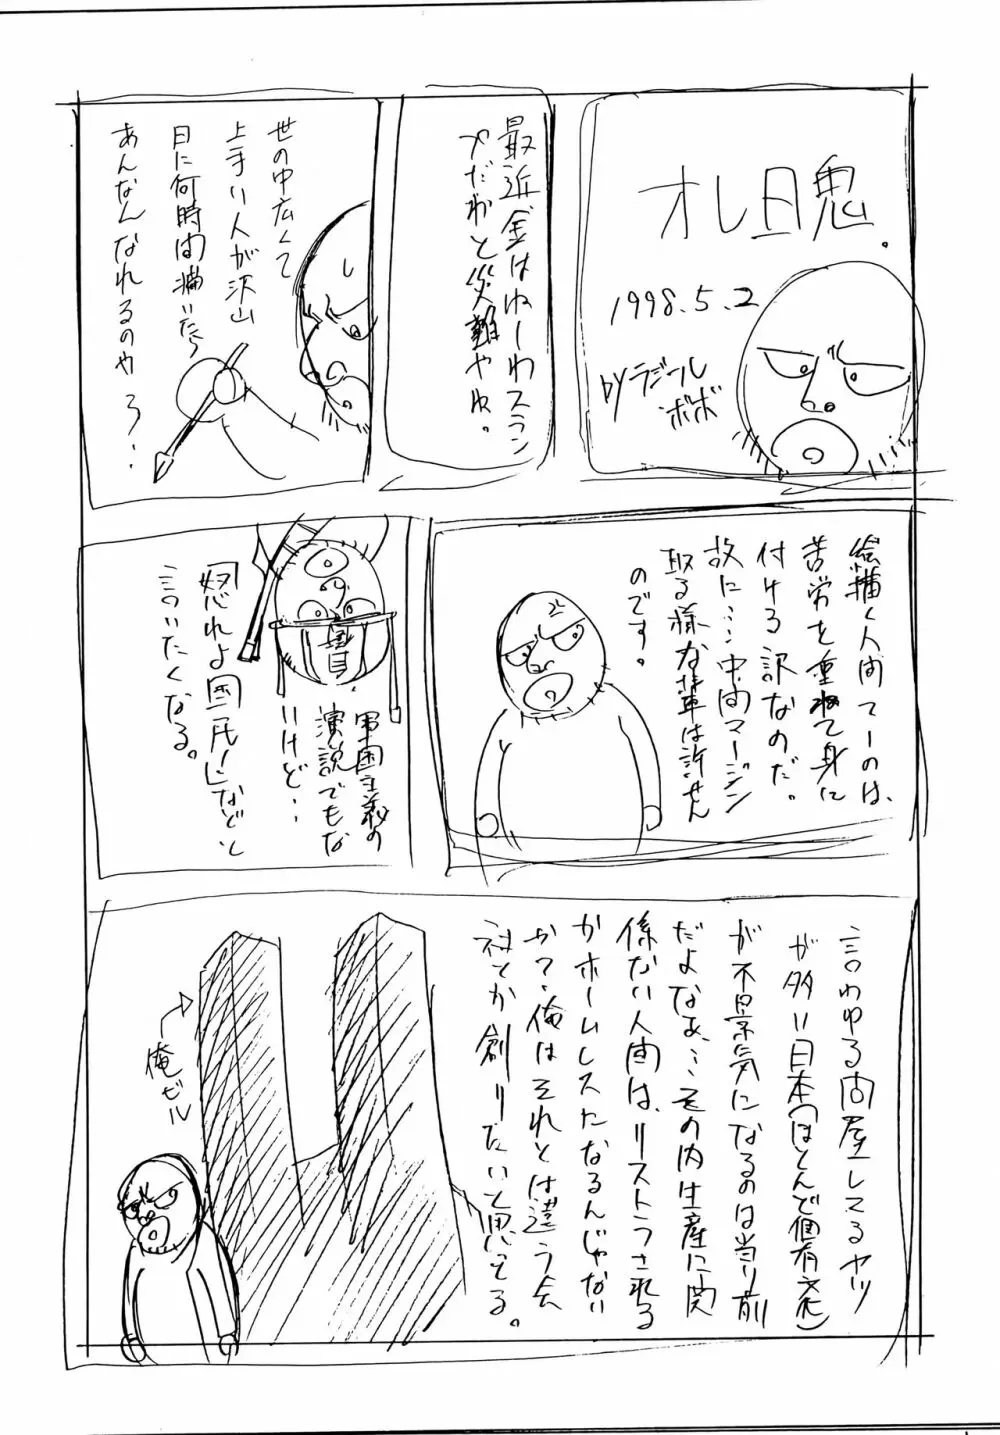 オレ日鬼。
1998.5.2
byラジール
ボボ
最近金はねーわスラン
プだわと災難やね。
世の中広くて
上手い人が沢山
日に何時間描いたら
あんなんなれるのやろ‥
絵描く人間てーのは、
苦労を重ねて身に
付ける訳なのだ。
故に…中間マージン
取る様な輩は許せん
のです。
軍国主義の
演説でもな
いけど‥
「怒れよ国民!」などと
言いたくなる。
言わゆる問屋してるヤツ
が多い日本(ほとんど個有
が不景気になるのは当り前
だよなぁ…その内生産に関
係ない人間は、リストラされる
かホームレスたなるんじゃない
かて、俺はそれとは違う会
社とか創りたいと思ってる。
俺ビル